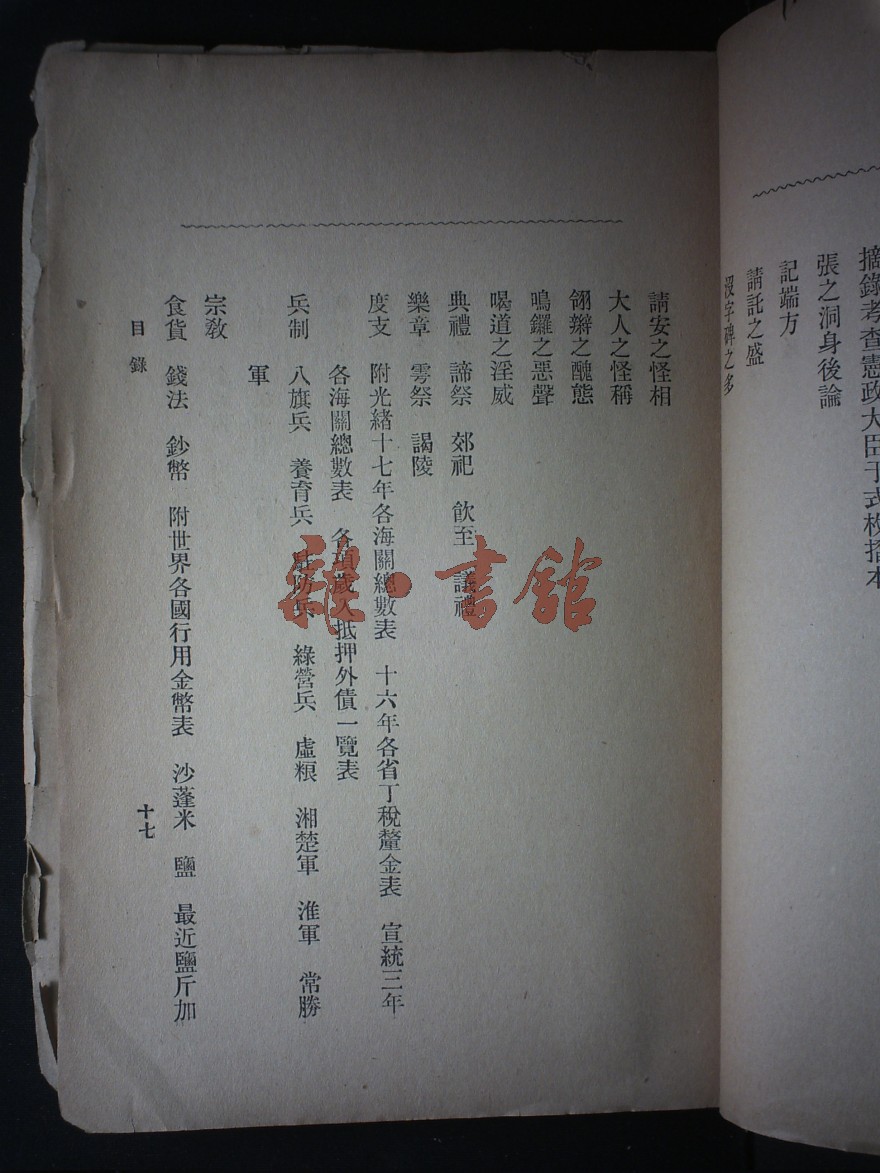 摘錄考查憲政大臣于式枚摺本
張之洞身後論
記端方
請託之盛
沒字碑之多
請安之怪相
大人之怪稱
翎辮之醜態
鳴鑼之惡聲
喝道之淫威
典禮 諦祭 郊祀 飮至 議禮
樂章 雩祭 謁陵
度支 附光緒十七年各海關總數表 十六年各省丁稅釐金表 宣統三年
各海關總數表 各項歲入抵押外債一覽表
兵制 八旗兵 養育兵 駐防兵 綠營兵 虛粮 湘楚軍 淮軍 常勝
軍
宗敎
食貨 錢法 鈔幣 附世界各國行用金幣表 沙蓬米 鹽 最近鹽斤加
目錄
十七
雜·書館